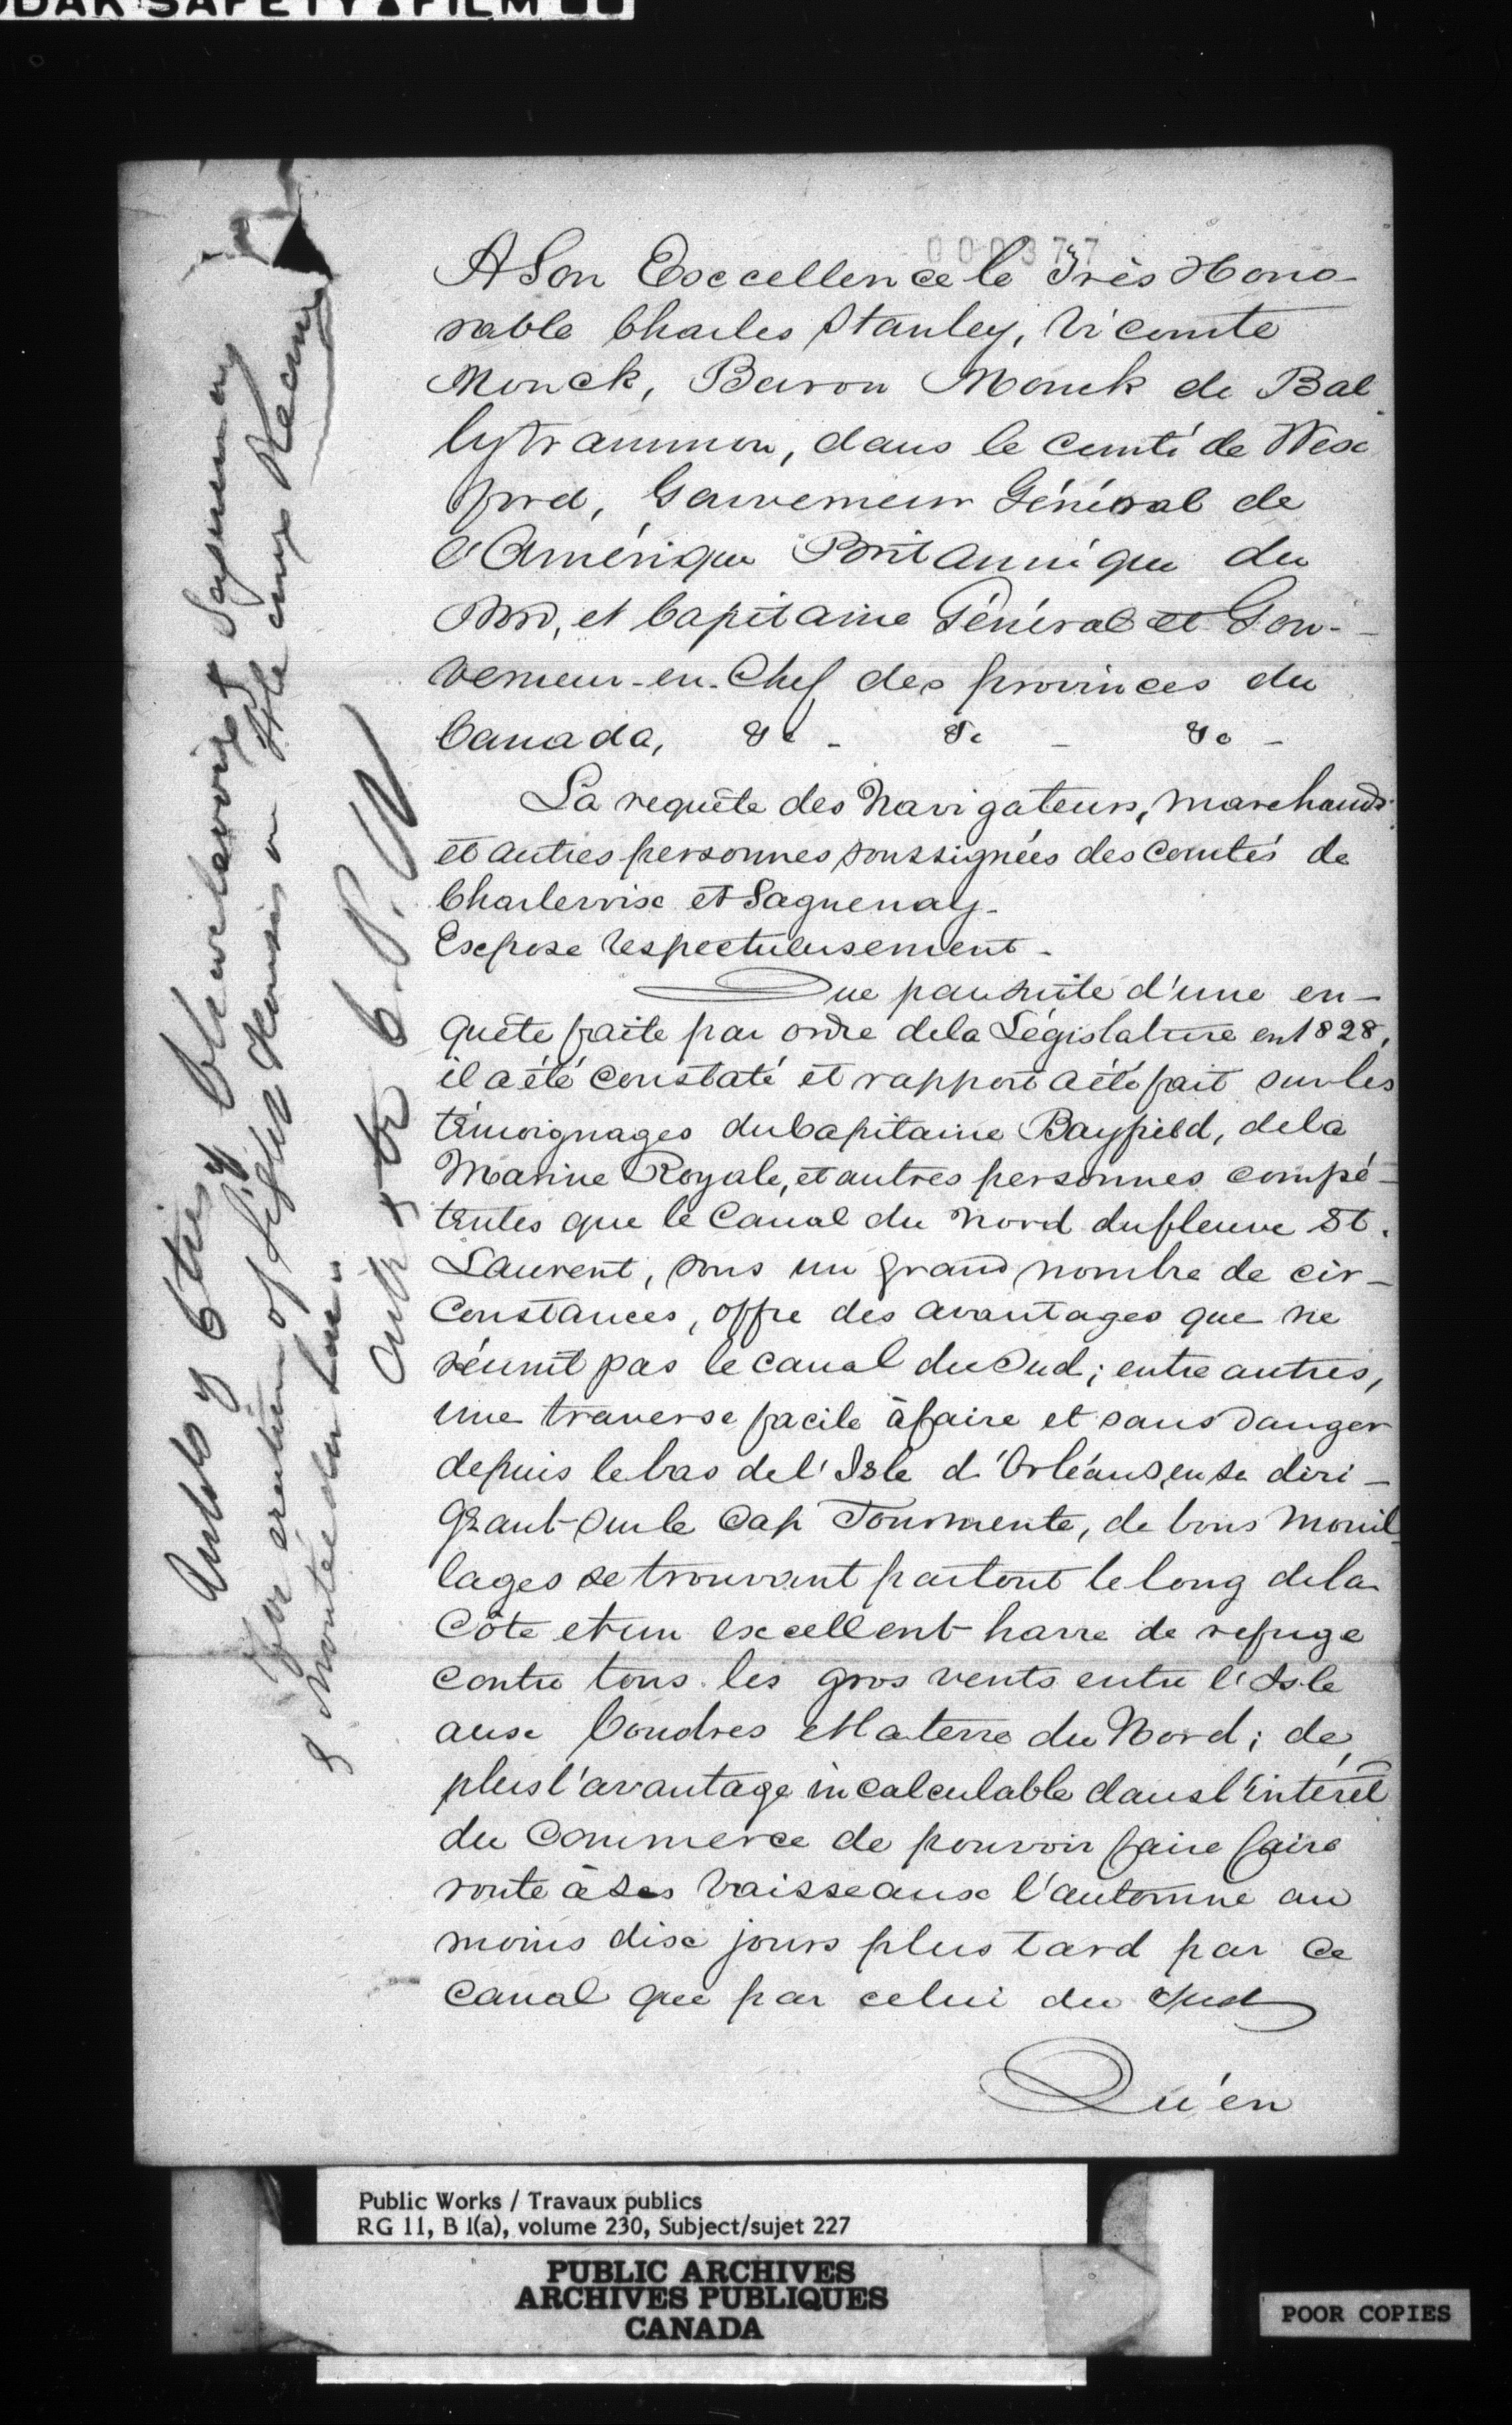 ODAK SAFETY FILM
000377
A Son Excellence le Très Hono-
rable Charles Stanley, Vicomte
Monck, Baron Monck de Bal
lytrammon, dans le comté de Wex
ford, Gouverneur Général de
l'Amérique Britannique du
Nord, et Capitaine Général et Gou-
verneur-en-Chef des provinces du
Canada, &c - &c - &c -
La requête des Navigateurs, Marchands
et autres personnes soussignées des Comtés de
Charlevoix et Saguenay.
Expose respectueusement -
Que par suite d'une en-
quête faite par ordre de la Législature en 1828,
il a été constaté et rapport a été fait sur les
témoignages du Capitaine Bayfield, de la
Marine Royale, et autres personnes compé-
tentes que le Canal du Nord du fleuve St.
Laurent, sous un grand nombre de cir-
constances, offre des avantages que ne
réunit pas le canal du Sud; entre autres,
une traverse facile à faire et sans danger
depuis le bas de l'Isle d'Orléans, en se diri-
geant sur le Cap Tourmente, de bons mouil
lages se trouvant partout le long de la
Côte et un excellent havre de refuge
contre tous les gros vents entre l'Isle
aux Coudres et la terre du Nord; de
plus l'avantage incalculable dans l'intérêt
du Commerce de pouvoir faire faire
route à ses Vaisseaux l'automne au
moins dix jours plus tard par ce
canal que par celui du Sud
Qu'en
of Ctrs of Charlevoix & Saguenay
For erection of Light Houses on
&
C. P. W
Public Works / Travaux publics
RG 11, B 1(a), volume 230, Subject/sujet 227
PUBLIC ARCHIVES
ARCHIVES PUBLIQUES
CANADA
POOR COPIES